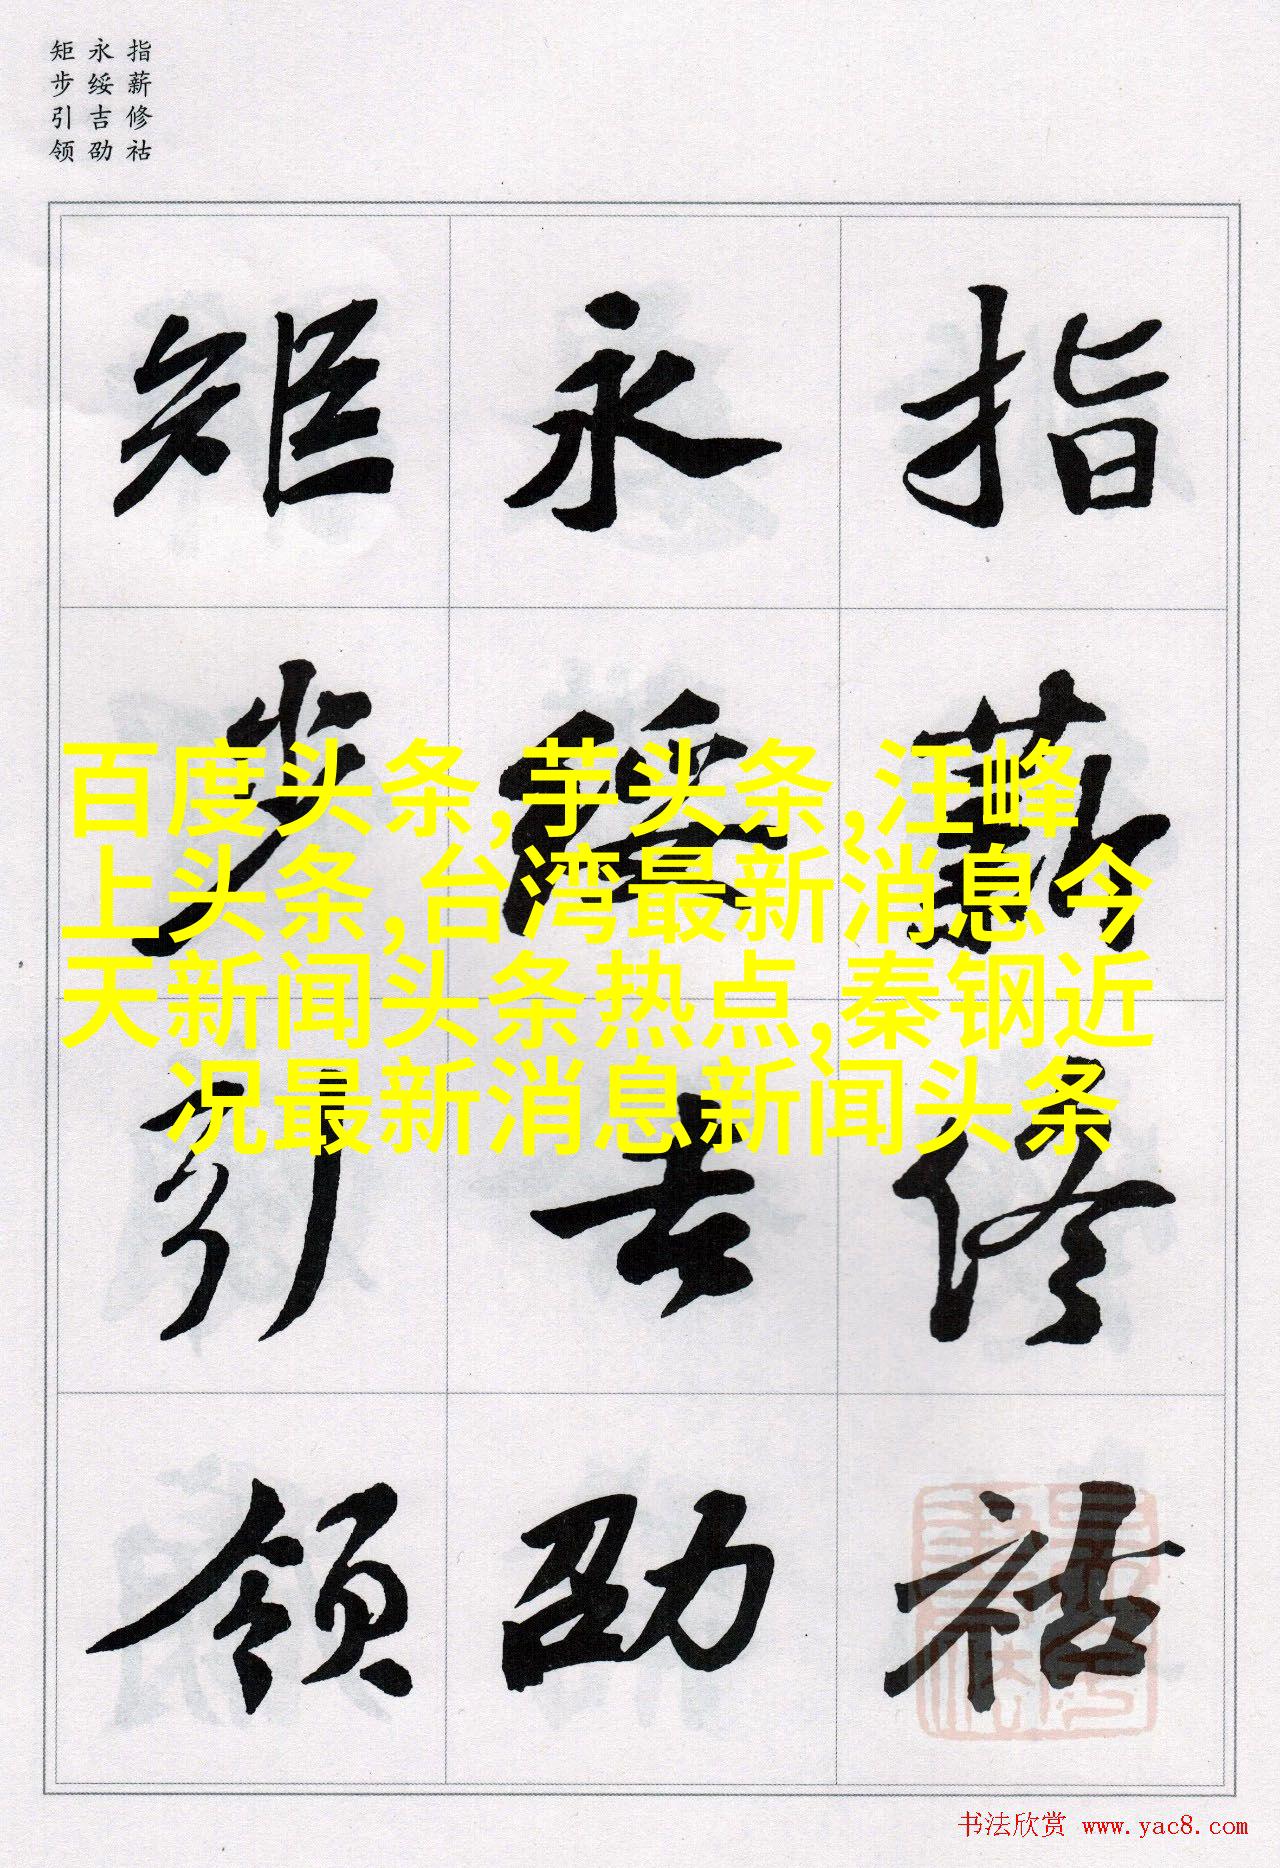 指薪修祜
永绥吉劭
矩步引领
指薪修祜
永绥吉劭
矩步引领
百度头条,芋头条,汪峰
上头条,台湾最新消息今
天新闻头条热点,秦钢近
况最新消息新闻头条
书法欣赏 www.yac8.com